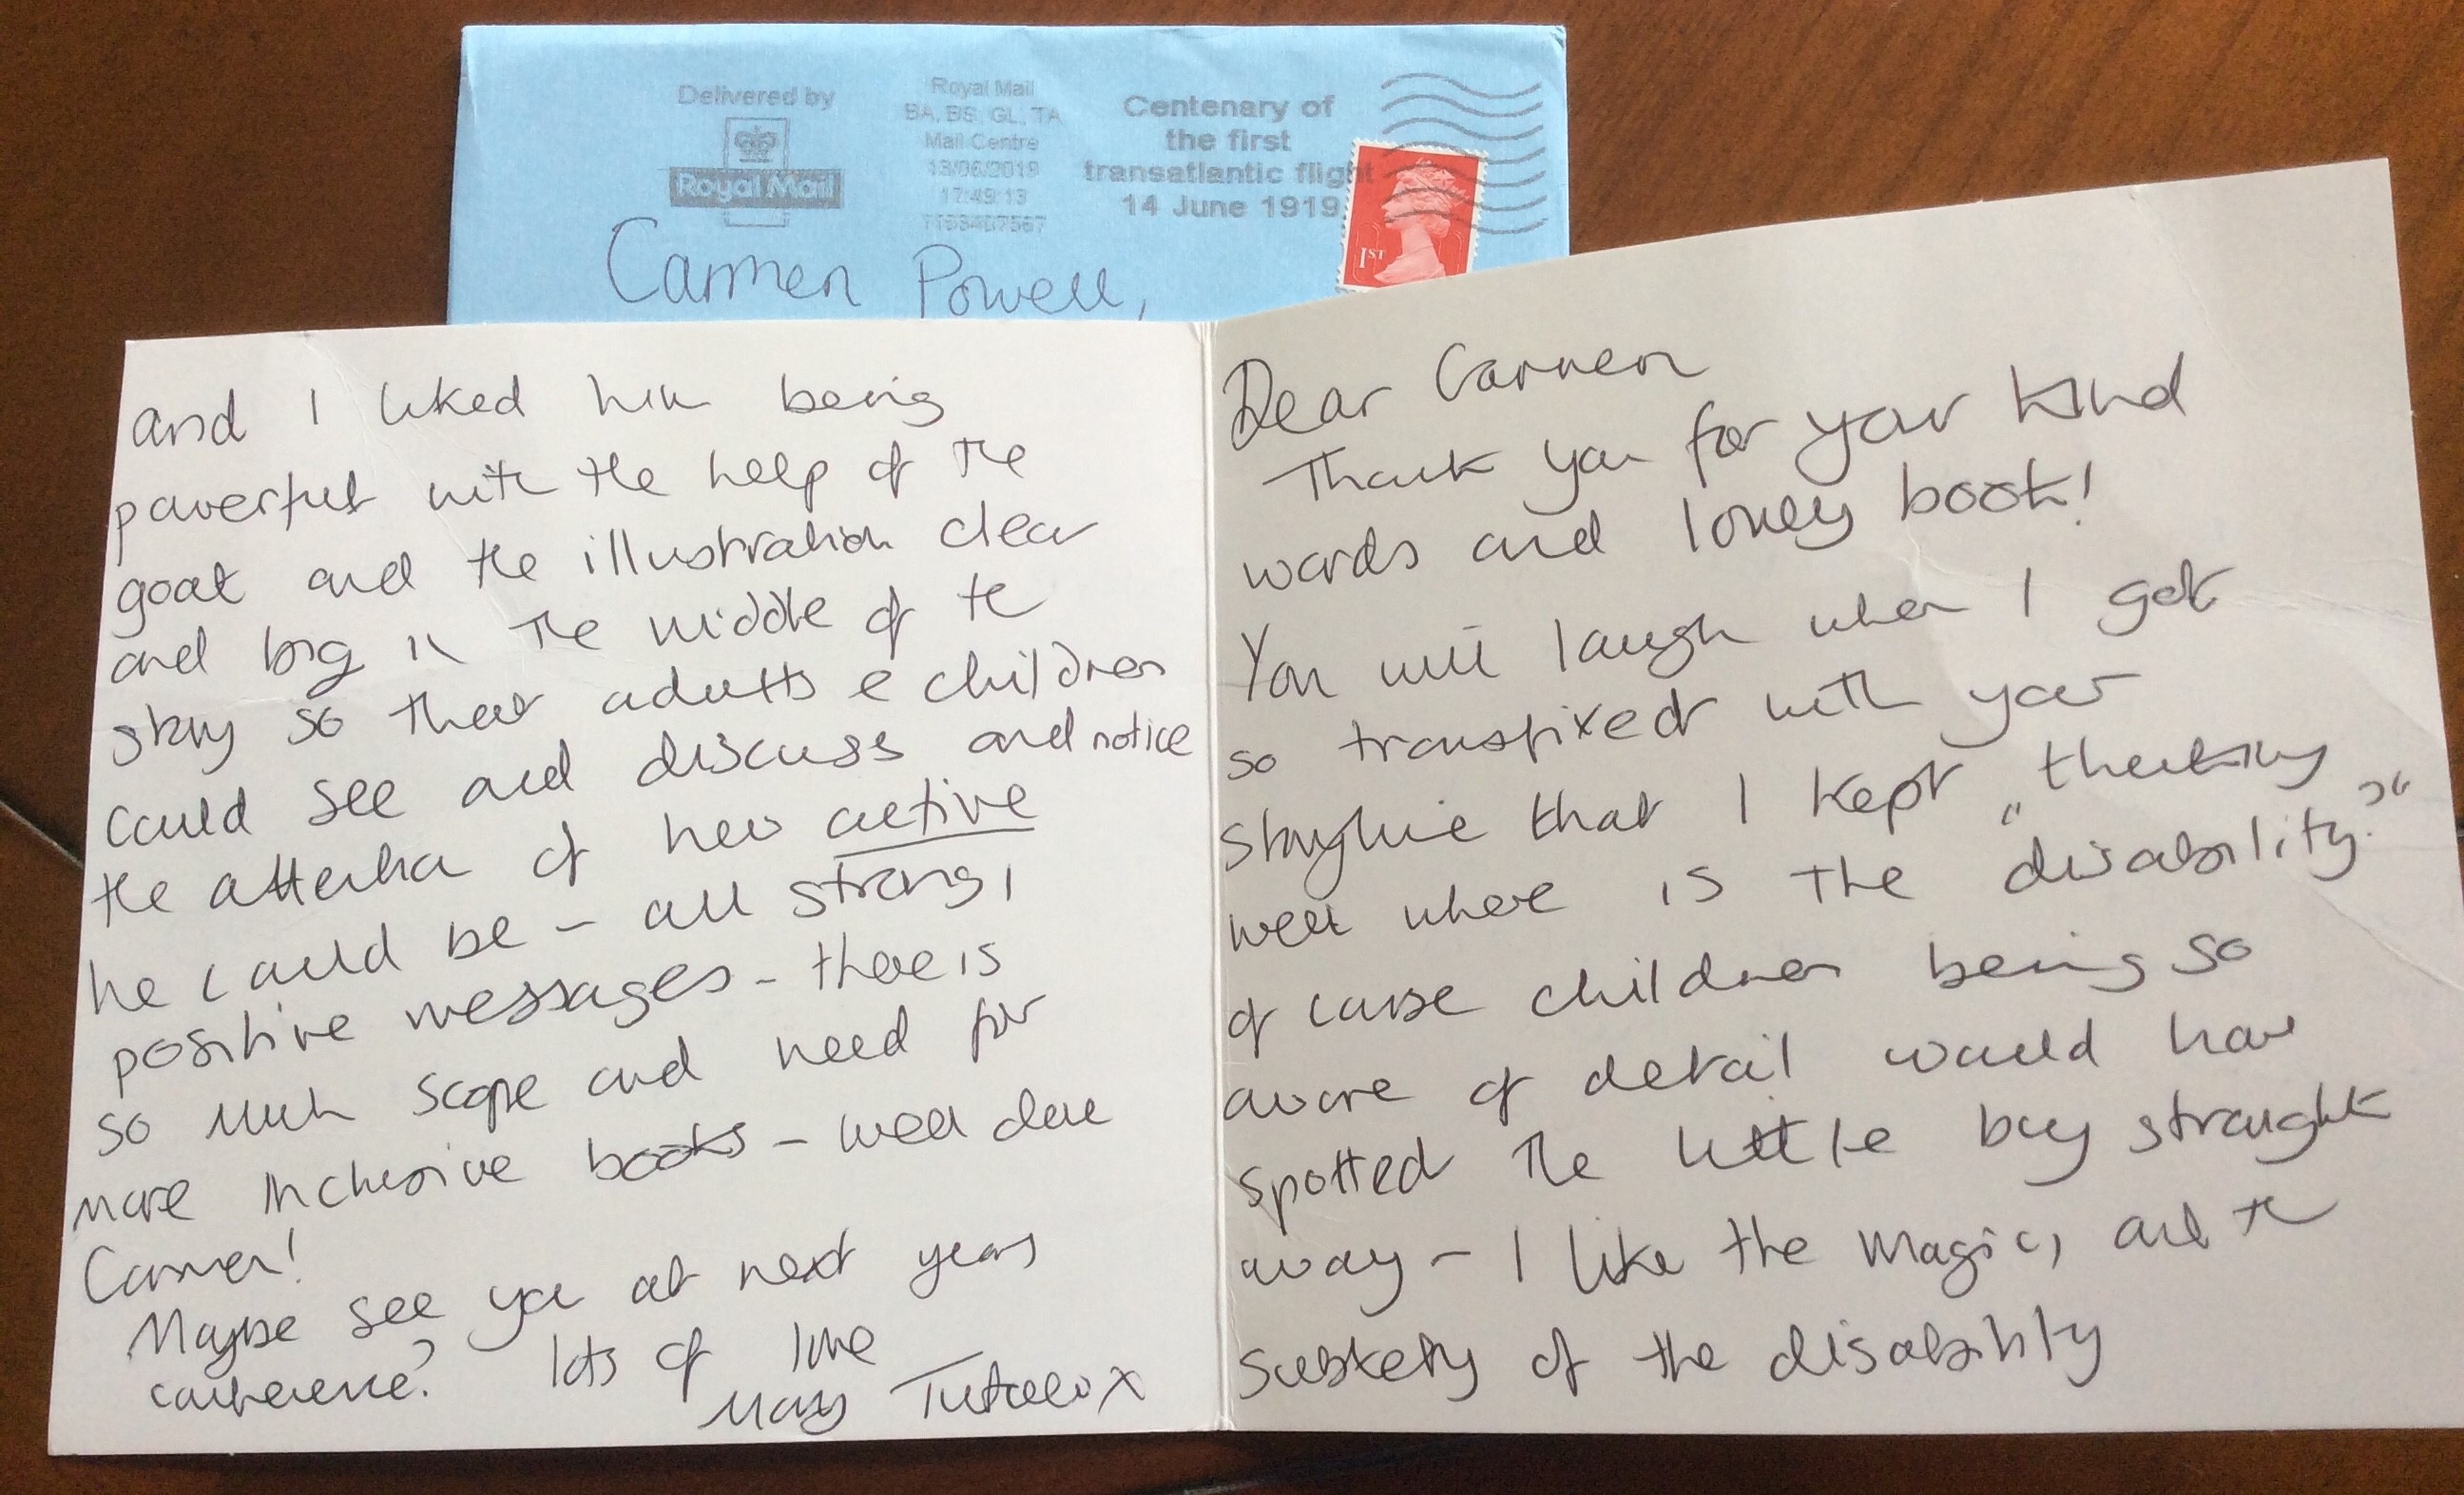 Delivered by
Royal Mail
Royal Mail
BA, BS, GL, TA
Mail Centre
13/06/2019
17:49:13
Centenary of
the first
transatlantic flight
14 June 1919
1ST
Carmen Powell,
Dear Carmen
Thank you for your kind
words and lovely book!
You will laugh when I got
so transfixed with your
storyline that I kept "thinking
well where is the disability?"
of course children being so
aware of detail would have
spotted the little boy straight
away - I like the magic, and the
subtlety of the disability
and I liked him being
powerful with the help of the
goat and the illustration clear
and big in the middle of the
story so that adults & children
could see and discuss and notice
the attention of how active
he could be - all strong,
positive messages - there is
so much scope and need for
more inclusive books - well done
Carmen!
Maybe see you at next years
conference? lots of love
x